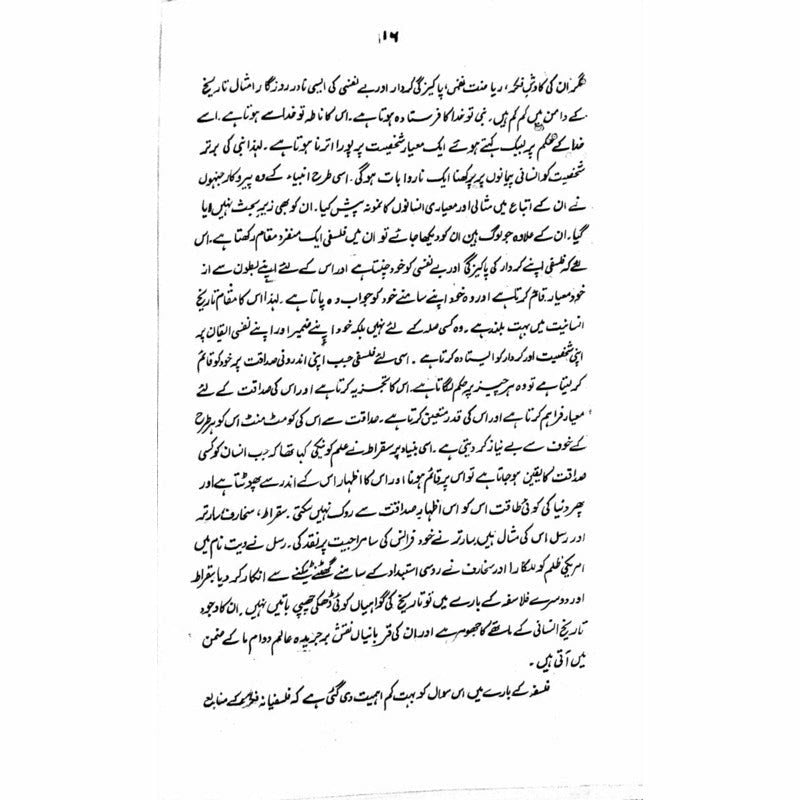 ۱۶
مگر ان کی کاوشِ فکر، ریاضت نفس، پاکیزگیٔ کردار اور بے نفسی کی ایسی نادر روزگار امثال تاریخ
کے دامن میں کم کم ہیں۔ نبی تو خدا کا فرستادہ ہوتا ہے۔ اس کا ناطہ تو خدا سے ہوتا ہے۔ اسے
خدا کے حکم پر لبیک کہتے ہوئے ایک معیار شخصیت پر پورا اترنا ہوتا ہے۔ لہذا نبی کی برتر
شخصیت کو انسانی پیمانوں پر پرکھنا ایک ناروا بات ہوگی۔ اسی طرح انبیاء کے وہ پیروکار جنہوں
نے ان کے اتباع میں مثالی اور معیاری انسانوں کا نمونہ پیش کیا۔ ان کو بھی زیر بحث نہیں لایا
گیا۔ ان کے علاوہ جو لوگ ہیں ان کو دیکھا جائے تو ان میں فلسفی ایک منفرد مقام رکھتا ہے۔ اس
لئے کہ فلسفی اپنے کردار کی پاکیزگی اور بے نفسی کو خود چنتا ہے اور اس کے لئے اپنے بطون سے از
خود معیار قائم کرتا ہے اور وہ خود اپنے سامنے خود کو جواب دہ پاتا ہے۔ لہذا اس کا مقام تاریخ
انسانیت میں بہت بلند ہے۔ وہ کسی صلہ کے لئے نہیں بلکہ خود اپنے ضمیر اور اپنے نفسی ایقان پر
اپنی شخصیت اور کردار کو ایستادہ کرتا ہے۔ اسی لئے فلسفی جب اپنی اندرونی صداقت پر خود کو قائم
کر لیتا ہے تو وہ ہر چیز پر حکم لگاتا ہے۔ اس کا تجزیہ کرتا ہے اور اس کی صداقت کے لئے
معیار فراہم کرتا ہے اور اس کی قدر متعین کرتا ہے۔ صداقت سے اس کی کومٹ منٹ اس کو ہر طرح
کے خوف سے بے نیاز کر دیتی ہے۔ اسی بنیاد پر سقراط نے علم کو نیکی کہا تھا کہ جب انسان کو کسی
صداقت کا یقین ہو جاتا ہے تو اس پر قائم ہونا اور اس کا اظہار اس کے اندر سے پھوٹتا ہے اور
پھر دنیا کی کوئی طاقت اس کو اس اظہار صداقت سے روک نہیں سکتی۔ سقراط، سخاروف سارتر
اور رسل اس کی مثال ہیں۔ سارتر نے خود فرانس کی سامراجیت پر نقد کی۔ رسل نے ویت نام میں
امریکی ظلم کو للکارا اور سخاروف نے روسی استبداد کے سامنے گھٹنے ٹیکنے سے انکار کر دیا۔ سقراط
اور دوسرے فلاسفہ کے بارے میں تو تاریخ کی گواہیاں کوئی ڈھکی چھپی باتیں نہیں۔ ان کا وجود
تاریخ انسانی کے ماتھے کا جھومر ہے اور ان کی قربانیاں نقش بر جریدہ عالم دوام ما کے ضمن
میں آتی ہیں۔
فلسفہ کے بارے میں اس سوال کو بہت کم اہمیت دی گئی ہے کہ فلسفیانہ فکر کے منابع